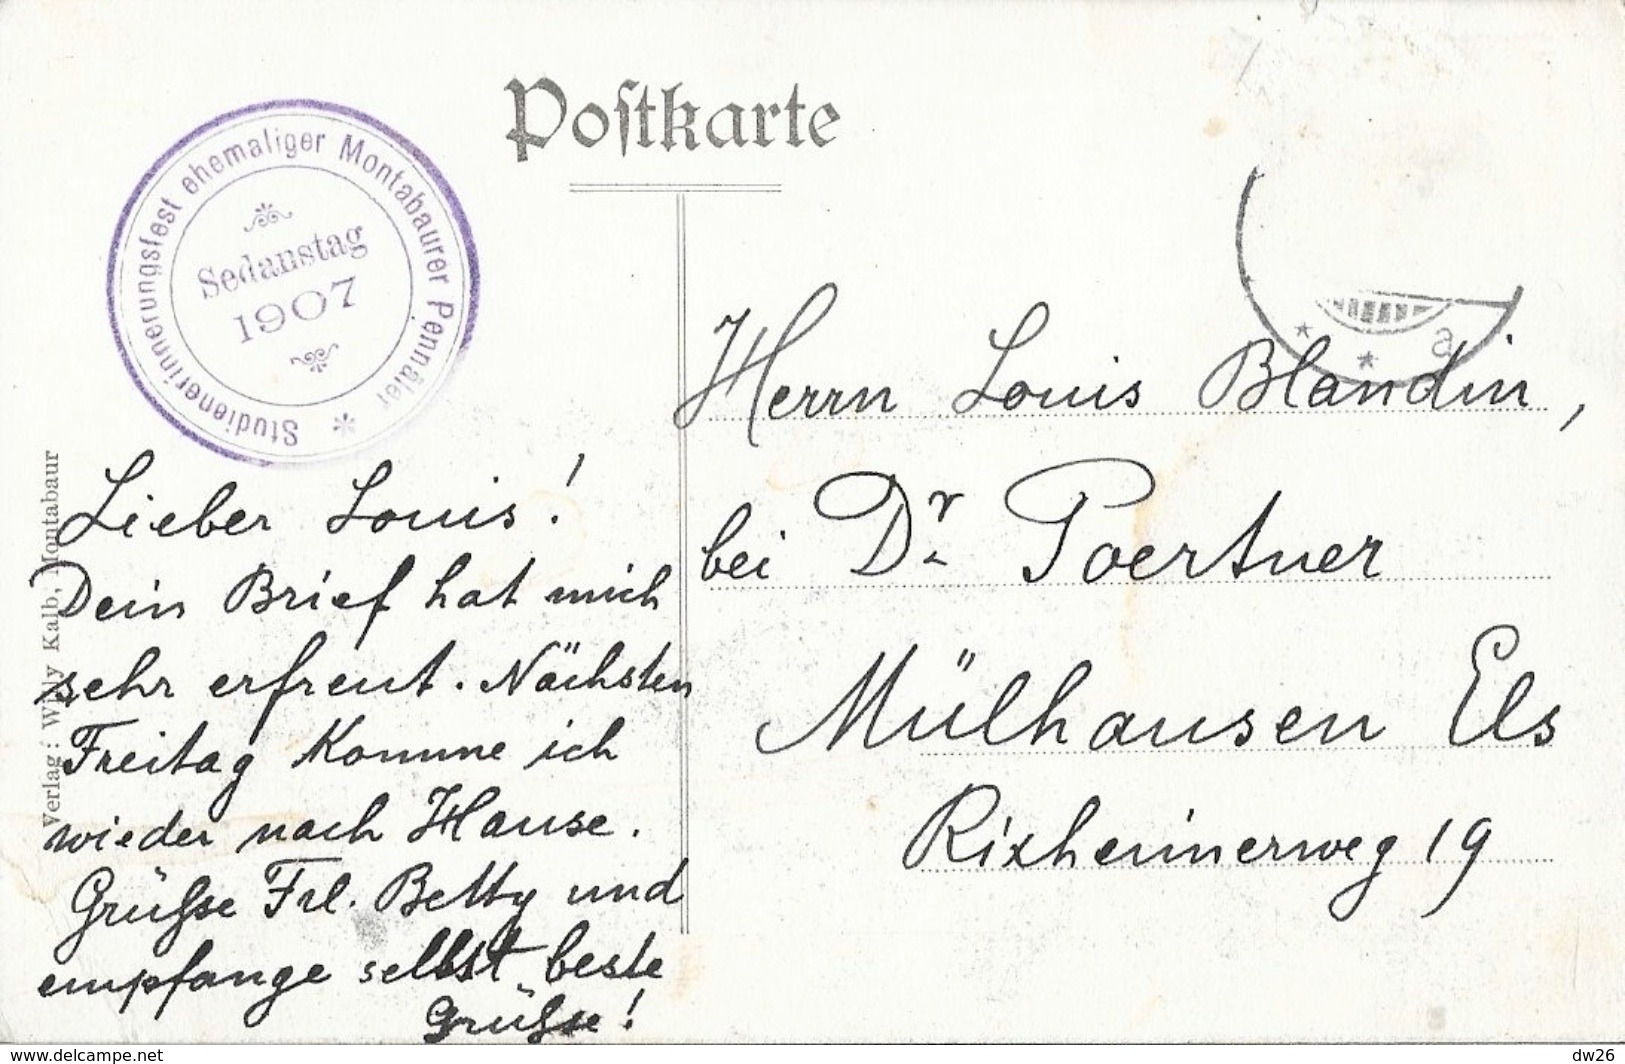 Postkarte
Studienerinnerungsfest ehemaliger Montabaurer Pennäler *
Sedanstag
1907
a
Verlag: Willy Kalb, Montabaur
Lieber Louis!
Dein Brief hat mich
sehr erfreut. Nächsten
Freitag komme ich
wieder nach Hause.
Grüsse Frl. Betty und
empfange selbst beste
Grüsse!
Herrn Louis Blandin,
bei Dr. Poertner
Mülhausen Els
Rixheimerweg 19
www.delcampe.net
dw26